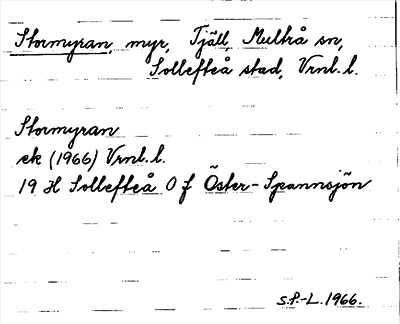 Stormyran, myr, Tjäll, Multrå sn,
Sollefteå stad, Vrnl. l.
Stormyran
ek (1966) Vrnl. l.
19 H Sollefteå O f Öster-Spannsjön
S.P.-L. 1966.